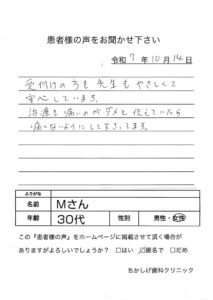 患者様の声をお聞かせ下さい
令和 7 年 10 月 14 日
受付けの方も先生もやさしくて
安心しています。
治療も痛いのがダメと伝えていたら
痛くないようにして下さってます。
ふりがな
名前 Mさん
年齢 30代 性別 男性・女性
この『患者様の声』をホームページに掲載させて頂く場合が
ありますがよろしいでしょうか? □はい ☑匿名で □だめ
ちかしげ歯科クリニック